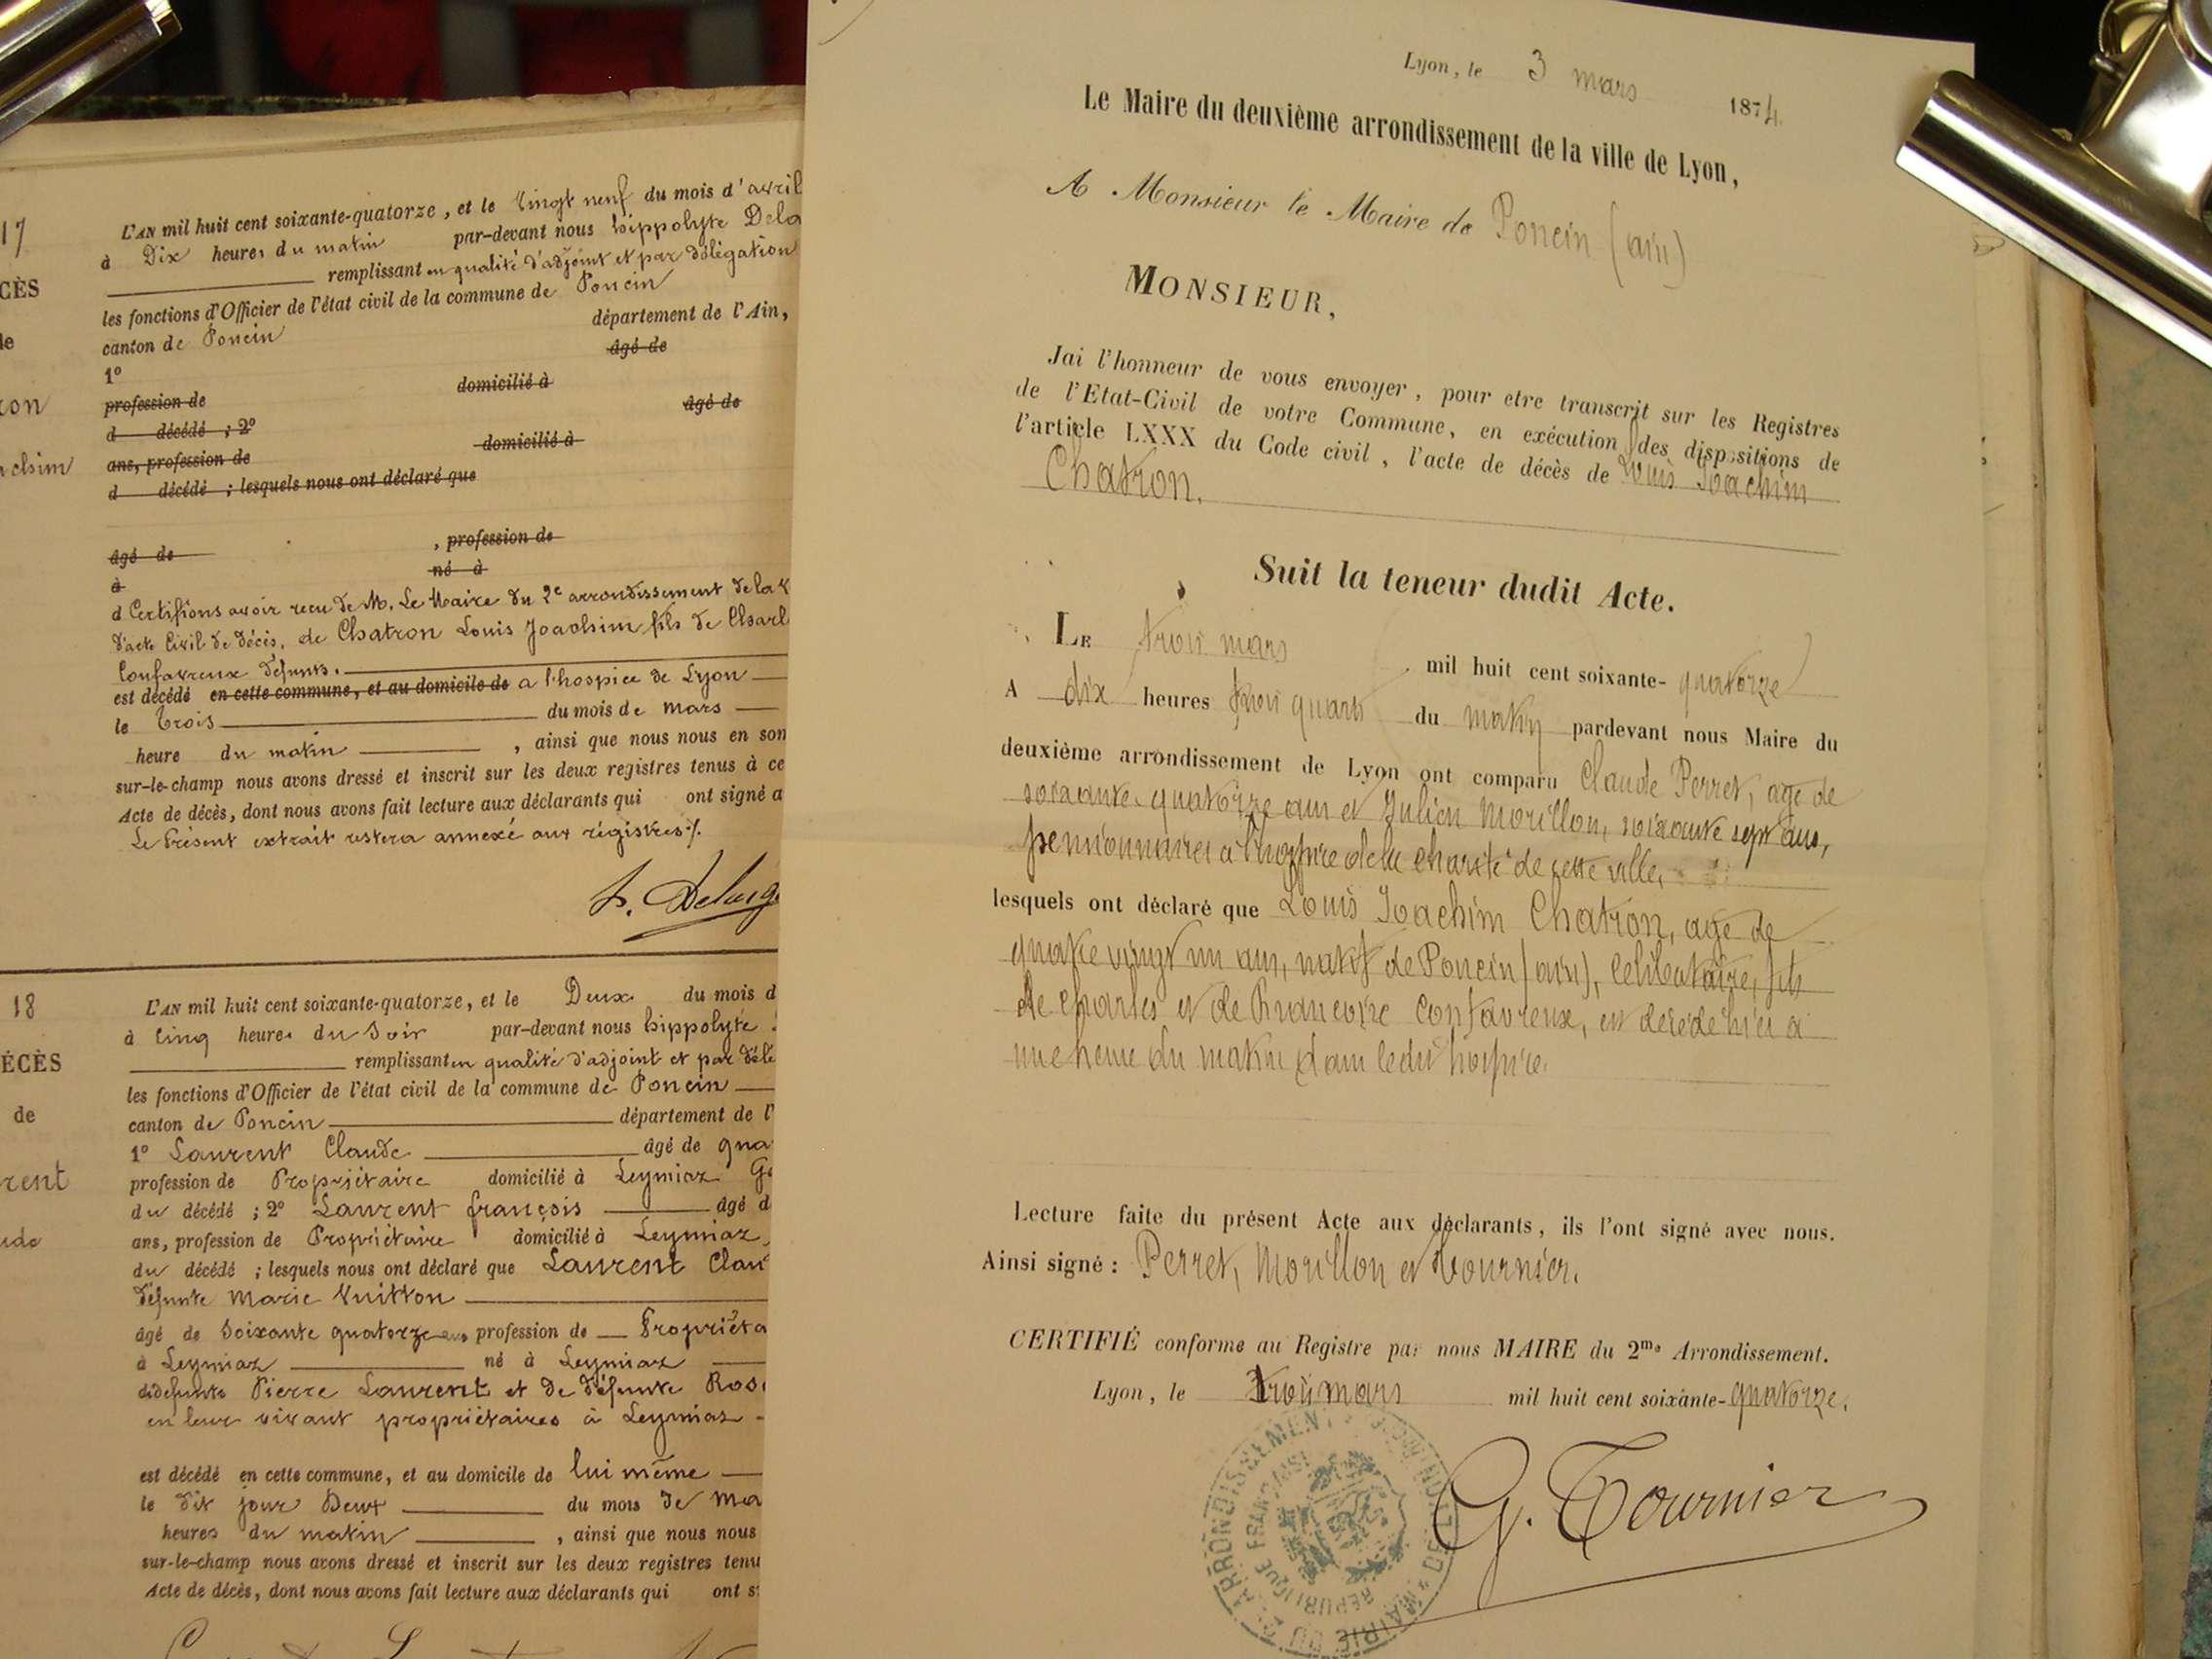 17
CÈS
le
ron
achim
L'AN mil huit cent soixante-quatorze, et le vingt neuf du mois d'avril
à Dix heures du matin par-devant nous hippolyte Dela
remplissant en qualité d'adjoint et par délégation
les fonctions d'Officier de l'état civil de la commune de Poncin
canton de Poncin département de l'Ain,
1º âgé de
profession de domicilié à
d décédé ; 2º âgé de
ans, profession de domicilié à
d décédé ; lesquels nous ont déclaré que
âgé de , profession de
à né à
d Certifions avoir recu de M. Le Maire du 2e arrondissement de la v
d'acte Civil de décès, de Chatron Louis Joachim fils de Charl
Confavreux défunts.
est décédé en cette commune, et au domicile de a l'hospice de Lyon
le trois du mois de mars
heure du matin , ainsi que nous nous en som
sur-le-champ nous avons dressé et inscrit sur les deux registres tenus à ce
Acte de décès, dont nous avons fait lecture aux déclarants qui ont signé a
Le Présent extrait restera annexé aux régistres ./.
h. Delaig
18
ÉCÈS
de
rent
ude
L'AN mil huit cent soixante-quatorze, et le Deux du mois d
à Cinq heures du Soir par-devant nous hippolyte
remplissant en qualité d'adjoint et par délé
les fonctions d'Officier de l'état civil de la commune de Poncin
canton de Poncin département de l'
1º Laurent Claude âgé de qua
profession de Propriétaire domicilié à Leymiaz Ge
du décédé ; 2º Laurent françois âgé d
ans, profession de Propriétaire domicilié à Leymiaz
du décédé ; lesquels nous ont déclaré que Laurent Clau
défunte Marie Vuitton
âgé de Soixante quatorze ans profession de Propriéta
à Leymiaz né à Leymiaz
de défunts Pierre Laurent et de défunte Ros
en leur vivant propriétaires à Leymiaz
est décédé en cette commune, et au domicile de lui même
le dit jour Deux du mois de Ma
heures du matin , ainsi que nous nous
sur-le-champ nous avons dressé et inscrit sur les deux registres tenu
Acte de décès, dont nous avons fait lecture aux déclarants qui ont s
Lyon, le 3 mars 1874.
Le Maire du deuxième arrondissement de la ville de Lyon,
A Monsieur le Maire de Poncin (ain)
MONSIEUR,
Jai l'honneur de vous envoyer, pour etre transcrit sur les Registres
de l'Etat-Civil de votre Commune, en exécution des dispositions de
l'article LXXX du Code civil, l'acte de décès de Louis Joachim
Chatron.
Suit la teneur dudit Acte.
LE trois mars mil huit cent soixante-quatorze
A dix heures trois quarts du matin pardevant nous Maire du
deuxième arrondissement de Lyon ont comparu Claude Perret, age de
soixante-quatorze ans et Julien Morillon, soixante sept ans,
pensionnaires a l'hospice de la charité de cette ville,
lesquels ont déclaré que Louis Joachim Chatron, age de
quatre vingt un ans, natif de Poncin (ain), celibataire, fils
de Charles et de Francoise Confavreux, est decede hier a
une heure du matin dans ledit hospice.
Lecture faite du présent Acte aux déclarants, ils l'ont signé avec nous.
Ainsi signé : Perret, Morillon et Tournier.
CERTIFIÉ conforme au Registre par nous MAIRE du 2me Arrondissement.
Lyon, le trois mars mil huit cent soixante-quatorze.
G. Tournier
MAIRIE DU 2e ARRONDISSEMENT DE LYON
REPUBLIQUE FRANÇAISE